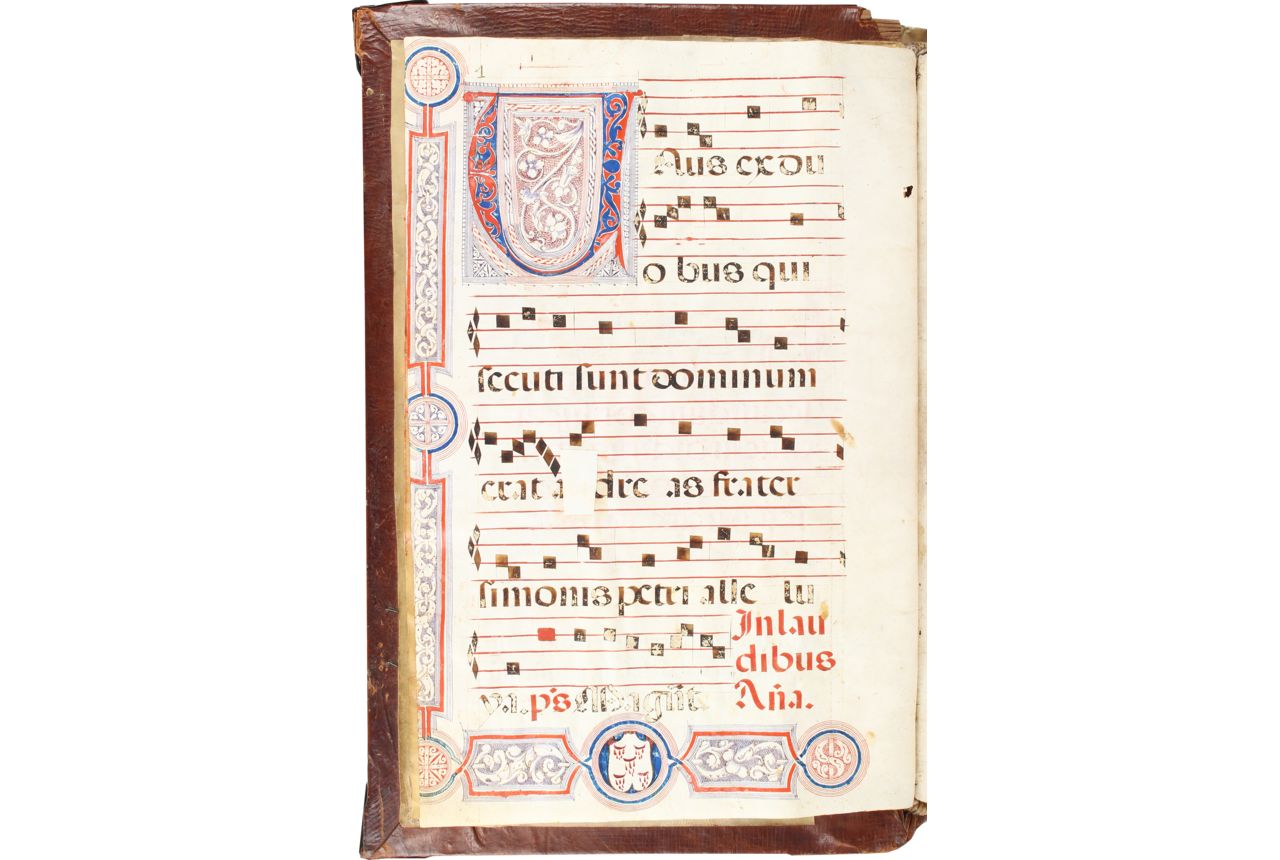 1
UAus ex du
o bus qui
secuti sunt dominum
erat a dre as frater
simonis petri alle lu
In lau
dibus
ya. ps
Aña.